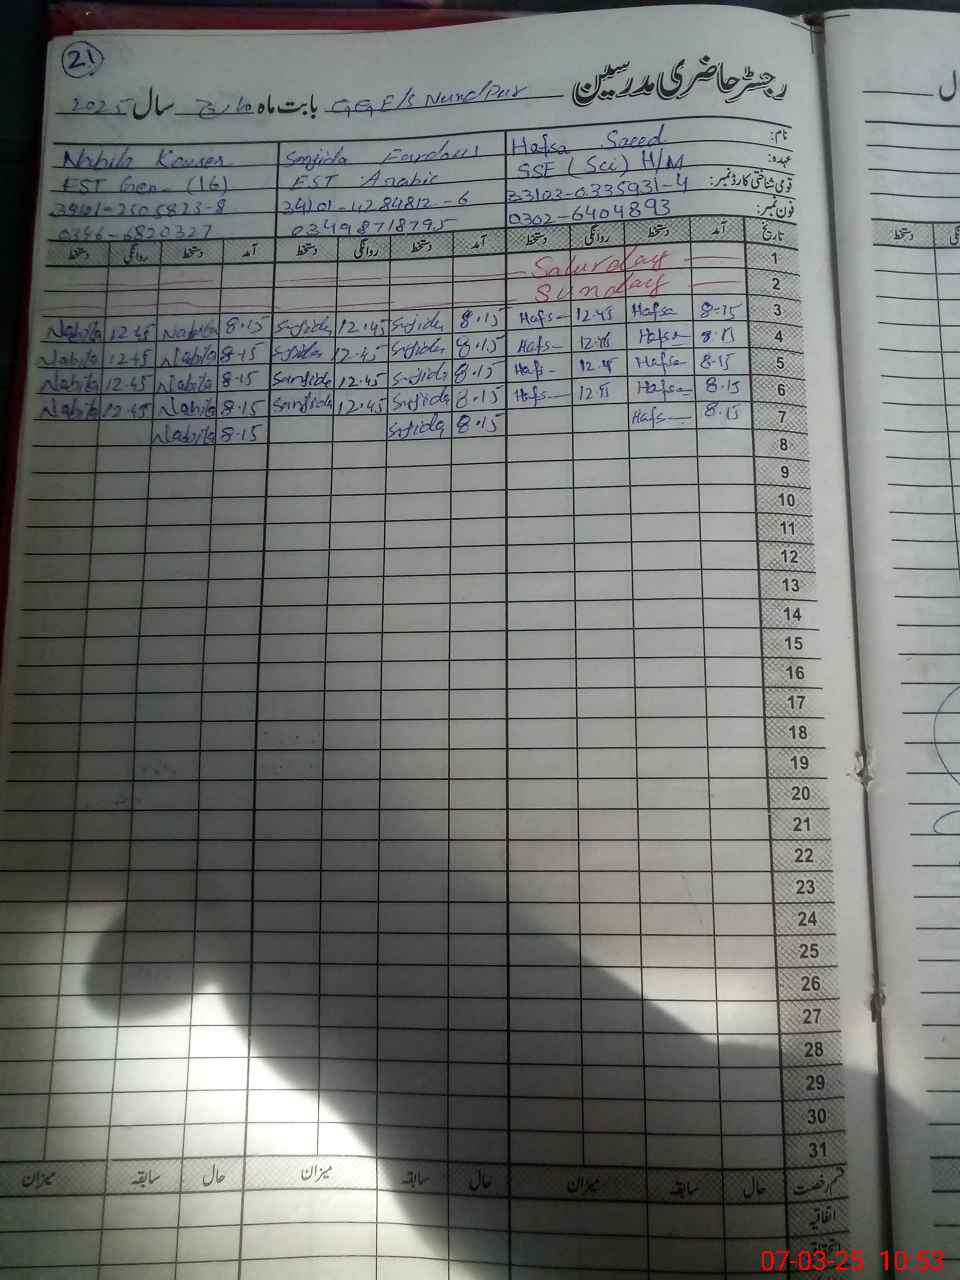 21
رجسٹر حاضری مدرسین
GGE/S Nurdpur بابت ماہ مارچ سال 2025
نام: Hafsa Saeed Sanjida Fardous Nabila Kouser
عہدہ: SSE (Sci) H/M EST Arabic EST Gen- (16)
قومی شناختی کارڈ نمبر: 33102-0335931-4 34101-4284812-6 34101-2505823-8
فون نمبر: 0302-6404893 03498718795 0346-6820327
تاریخ آمد دستخط روانگی دستخط آمد دستخط روانگی دستخط آمد دستخط روانگی دستخط
1 Saturday
2 Sunday
3 8-15 Hafsa 12.45 Hafs 8.15 Sanjida 12.45 Sanjida 8.15 Nabila 12.45 Nabila
4 8.15 Hafsa 12.45 Hafs 8.15 Sanjida 12.45 Sanjida 8.15 Nabila 12.45 Nabila
5 8.15 Hafsa 12.45 Hafs 8.15 Sanjida 12.45 Sanjida 8.15 Nabila 12.45 Nabila
6 8.15 Hafsa 12.45 Hafs 8.15 Sanjida 12.45 Sanjida 8.15 Nabila 12.45 Nabila
7 8.15 Hafs 8.15 Sanjida 8.15 Nabila
8
9
10
11
12
13
14
15
16
17
18
19
20
21
22
23
24
25
26
27
28
29
30
31
قسم رخصت حال سابقہ میزان حال سابقہ میزان حال سابقہ میزان
اتفاقیہ
دستخط
07-03-25 10.53